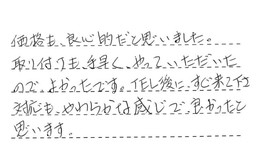 価格も、良心的だと思いました。
取り付けも、手早く、やっていただいた
ので、よかったです。作し後に、すぐ来て下さ
対応も、やわらかな感じで、良かったと
思います。